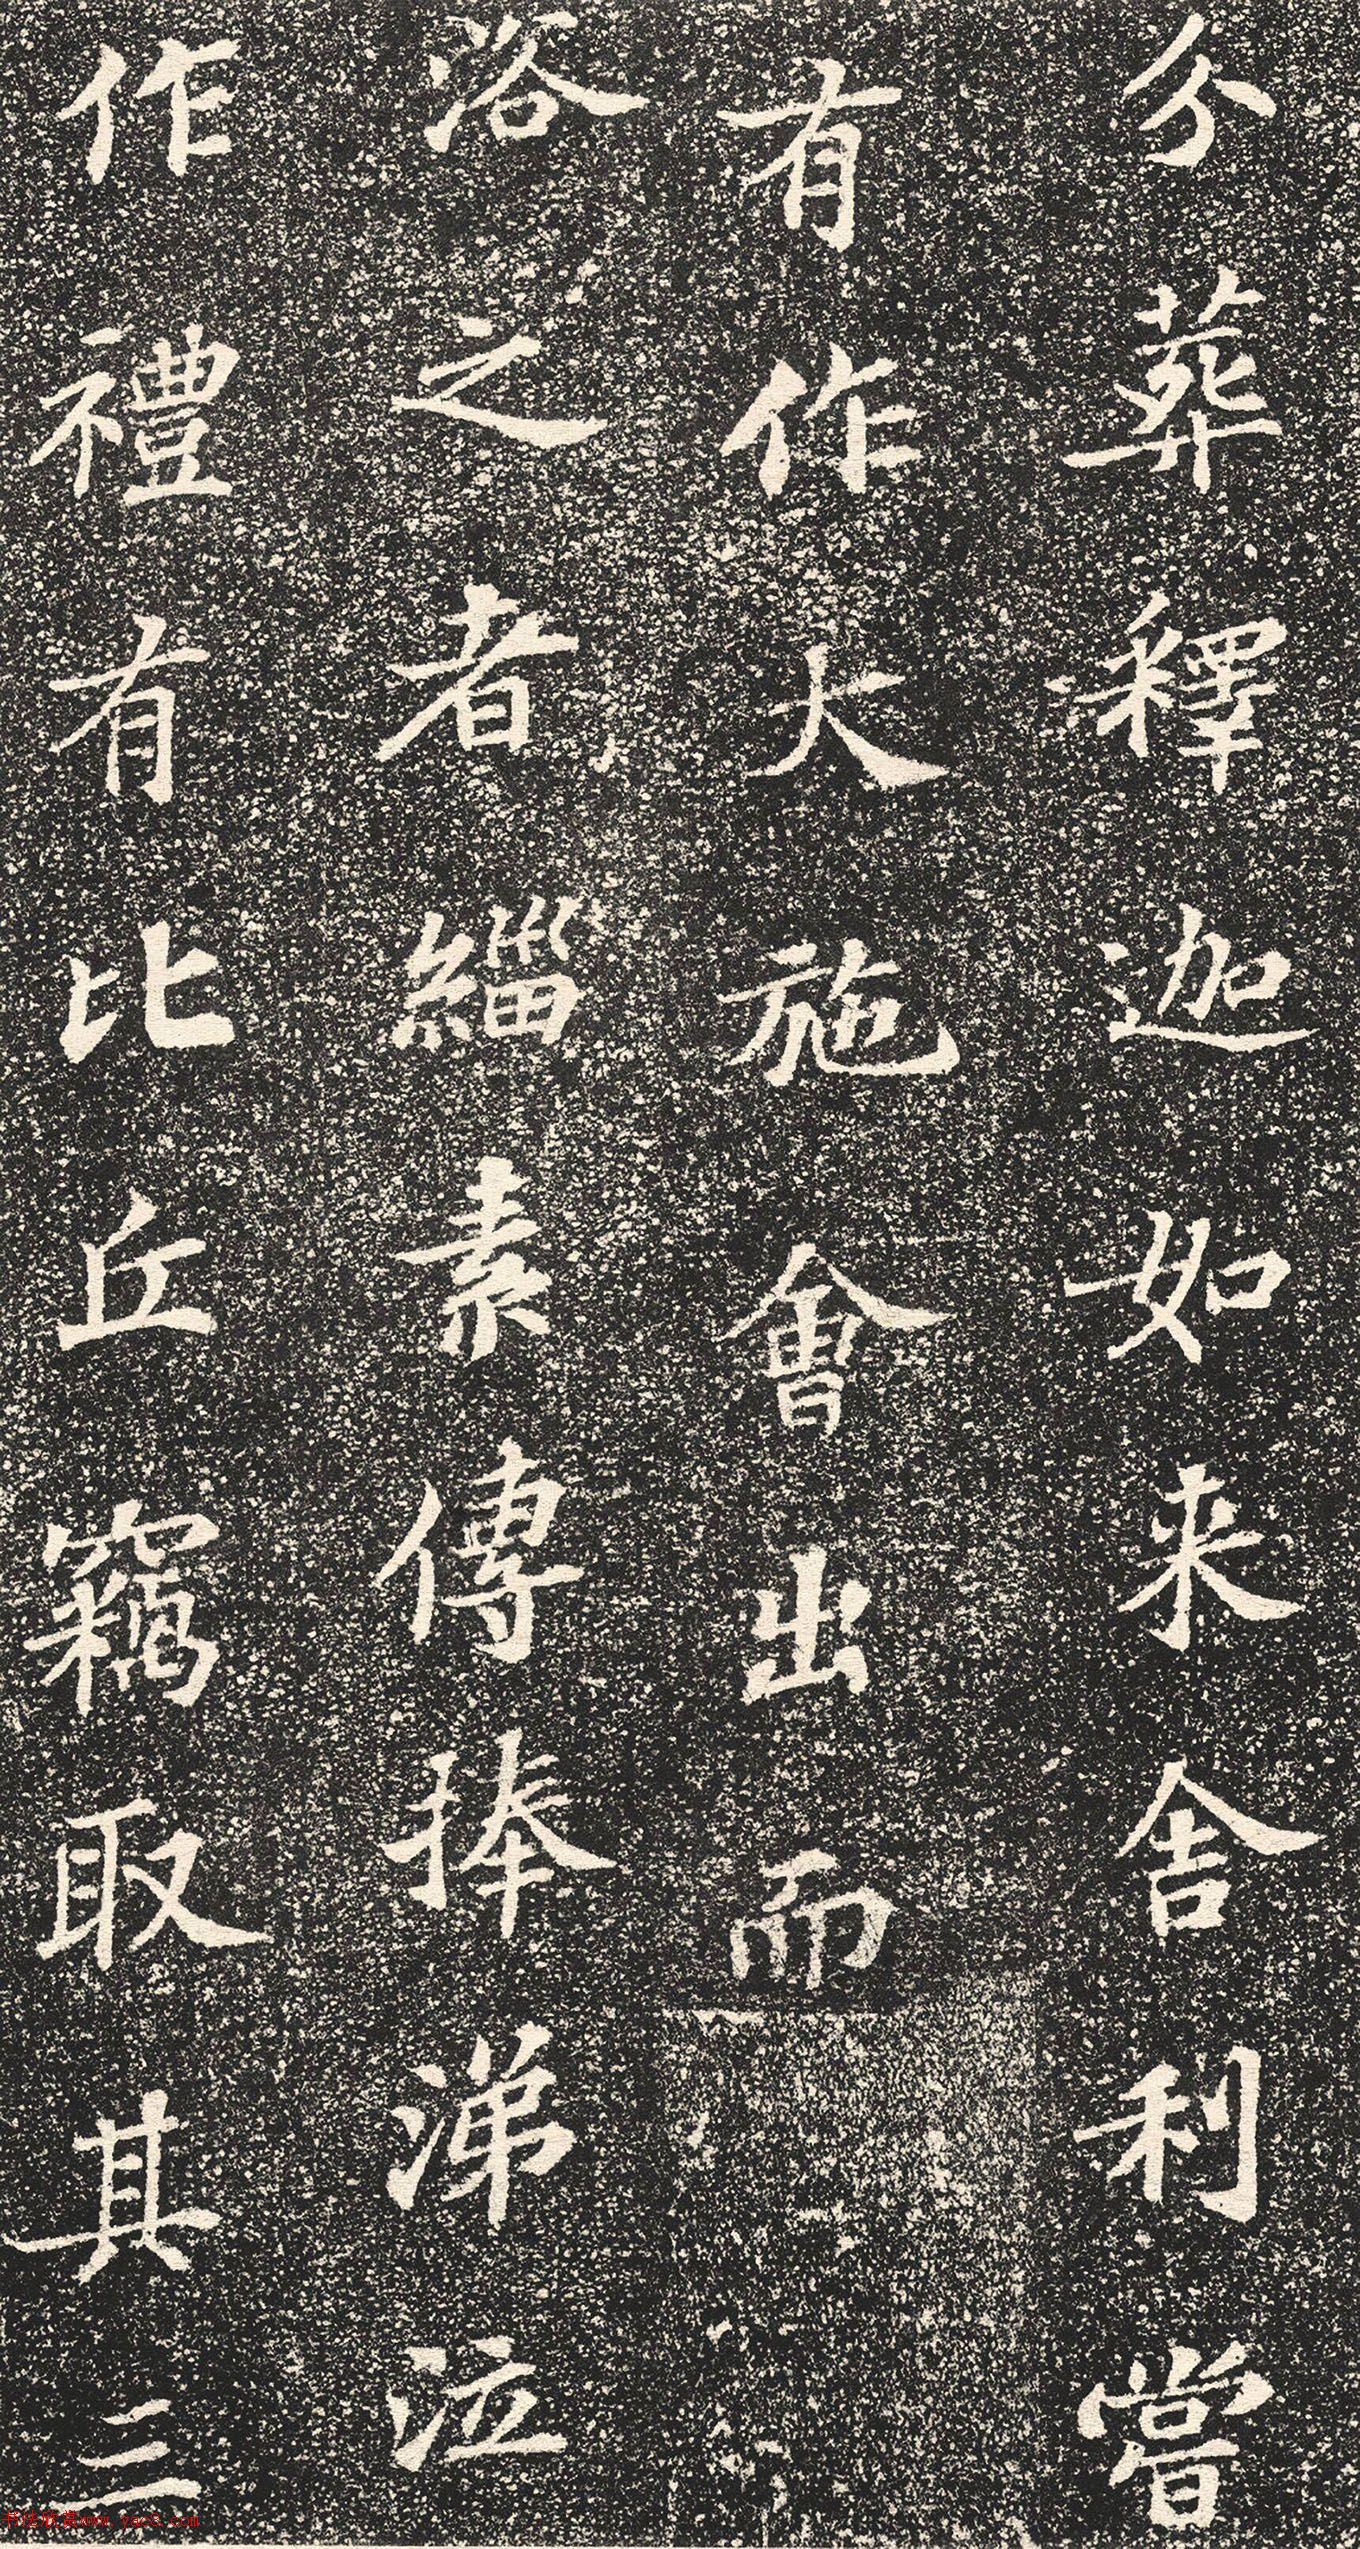 分葬釋迦如来舍利嘗
有作大施會出而
浴之者緇素傳捧涕泣
作禮有比丘竊取其三
书法欣赏www.yac8.com